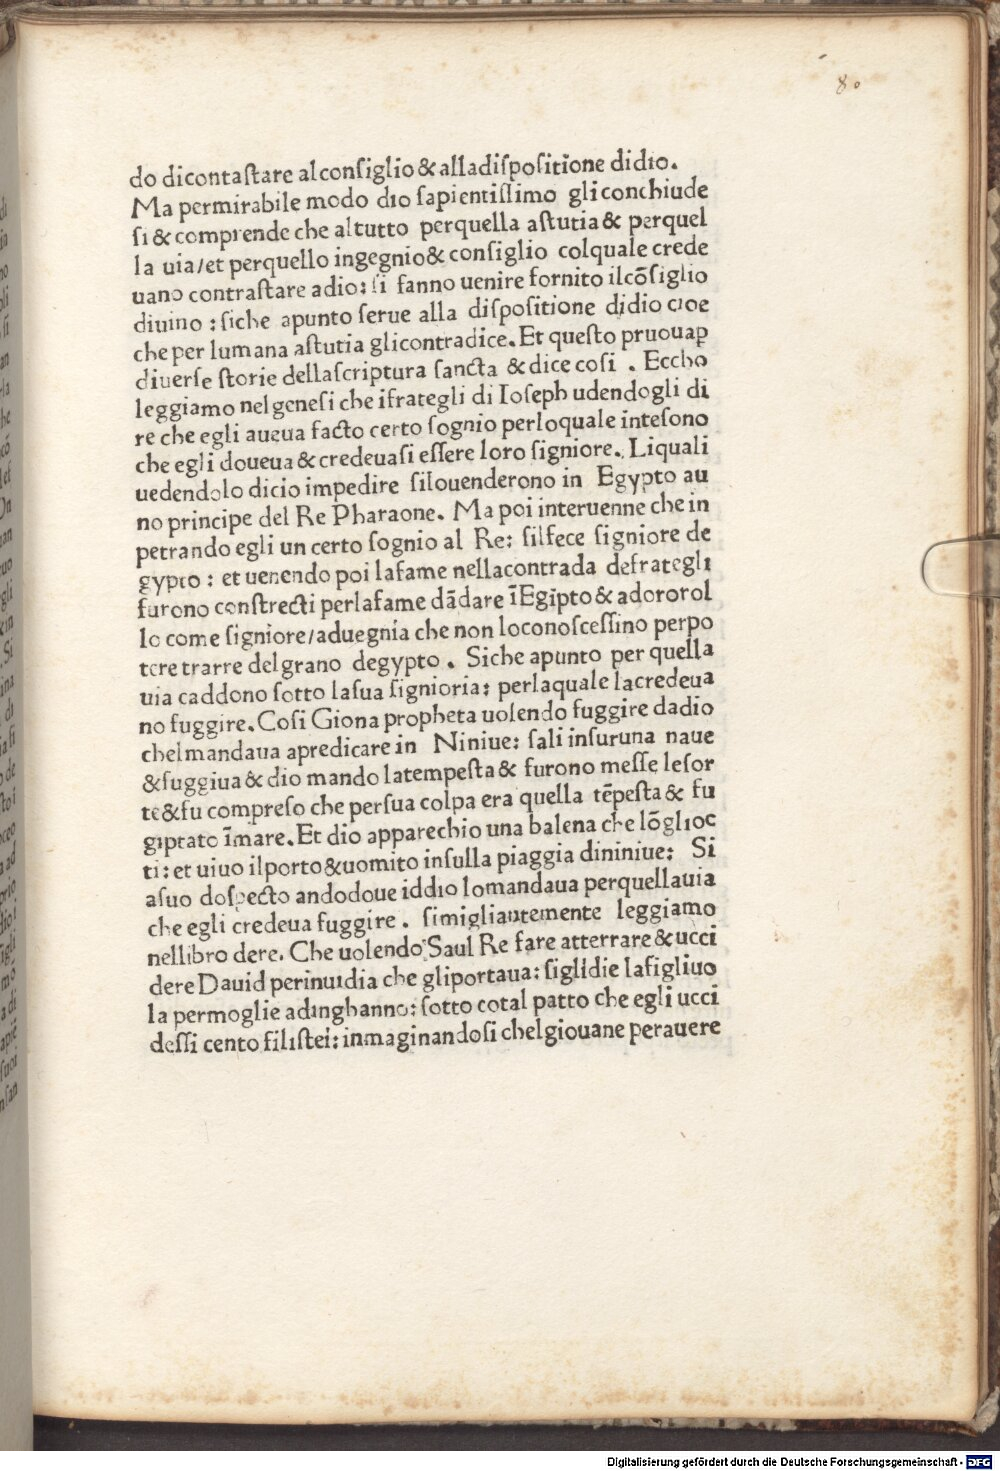 80
do dicontaſtare alconſiglio & alladiſpoſitione didio.
Ma permirabile modo dio ſapientiſſimo gliconchiude
ſi & comprende che altutto perquella aſtutia & perquel
la uia/et perquello ingegnio & conſiglio colquale crede
uano contraſtare adio: ſi fanno uenire fornito ilcõſiglio
diuino : ſiche apunto ſerue alla diſpoſitione didio cioe
che per lumana aſtutia glicontradice. Et queſto pruouap
diuerſe ſtorie dellaſcriptura ſancta & dice coſi . Eccho
leggiamo nelgeneſi che ifrategli di Ioſeph udendogli di
re che egli aueua facto certo ſognio perloquale inteſono
che egli doueua & credeuaſi eſſere loro ſigniore. Liquali
uedendolo dicio impedire ſilouenderono in Egypto au
no principe del Re Pharaone. Ma poi interuenne che in
petrando egli un certo ſognio al Re: ſilfece ſigniore de
gypto : et uenendo poi lafame nellacontrada defrategli
furono conſtrecti perlafame dãdare ĩEgipto & adororol
lo come ſigniore/aduegnia che non loconoſceſſino perpo
tere trarre delgrano degypto . Siche apunto per quella
uia caddono ſotto laſua ſignioria: perlaquale lacredeua
no fuggire. Coſi Giona propheta uolendo fuggire dadio
chelmandaua apredicare in Niniue: ſali inſuruna naue
& fuggiua & dio mando latempeſta & furono meſſe leſor
te & fu compreſo che perſua colpa era quella tẽpeſta & fu
giptato ĩmare. Et dio apparechio una balena che lõghioc
ti: et uiuo ilporto & uomito inſulla piaggia dininiue: Si
aſuo doſpecto andodoue iddio lomandaua perquellauia
che egli credeua fuggire . ſimigliantemente leggiamo
nellibro dere. Che uolendo Saul Re fare atterrare & ucci
dere Dauid perinuidia che gliportaua: ſiglidie lafigliuo
la permoglie adinghanno: ſotto cotal patto che egli ucci
deſſi cento filiſtei: inmaginandoſi chelgiouane perauere
Digitalisierung gefördert durch die Deutsche Forschungsgemeinschaft - DFG